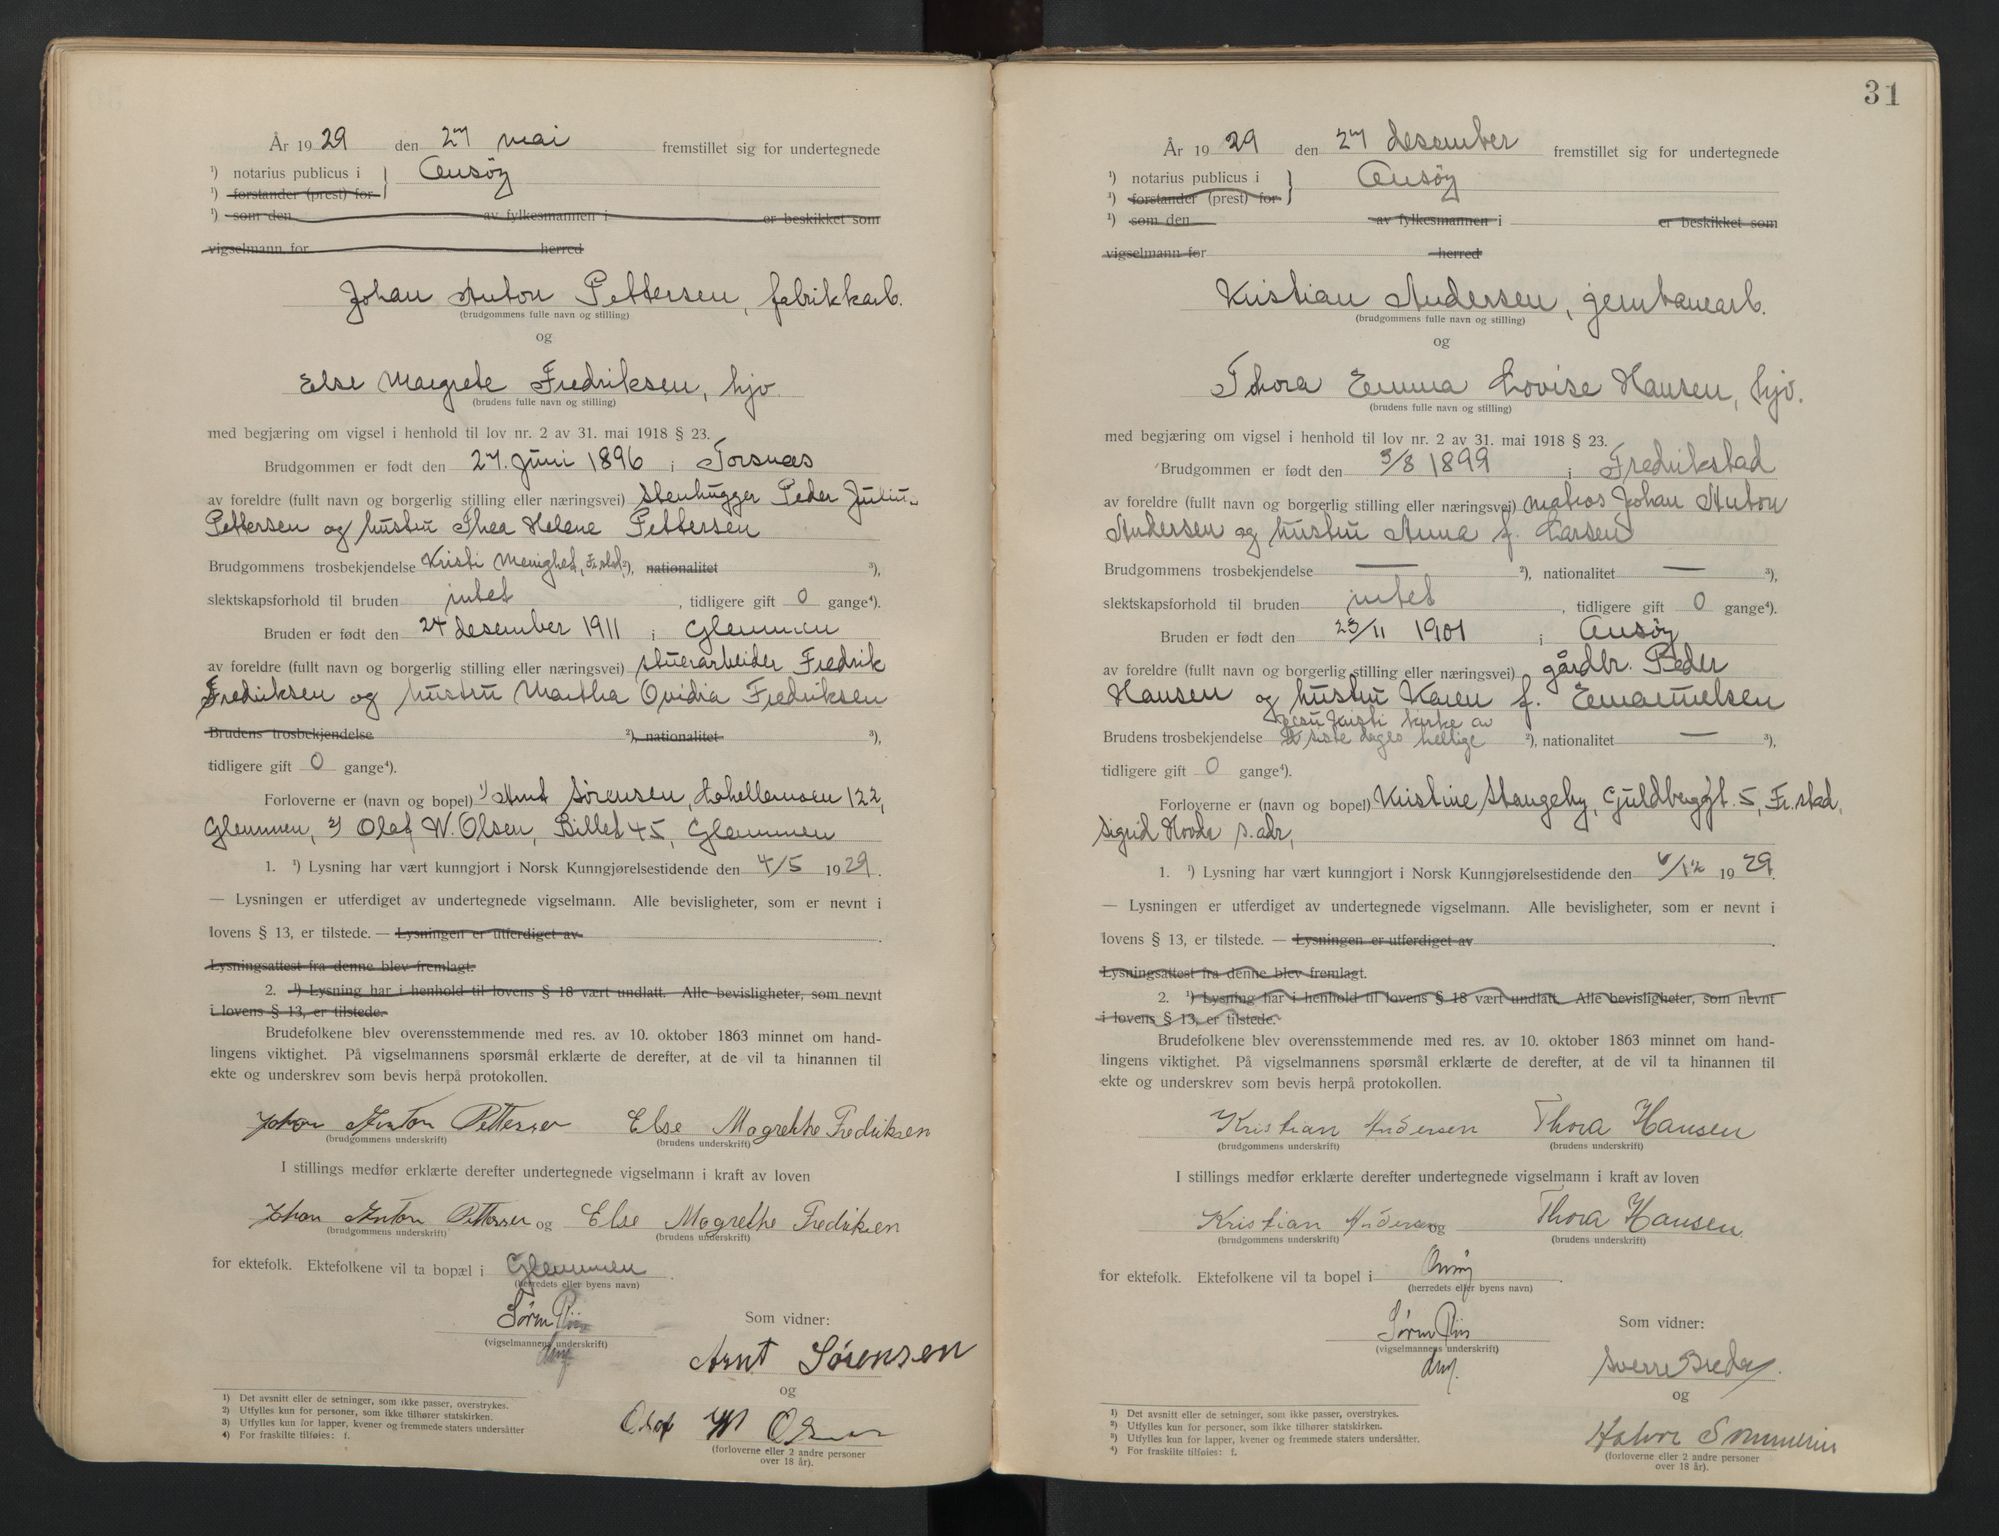 År 1929 den 27 mai fremstillet sig for undertegnede
¹) notarius publicus i } Onsøy
¹) forstander (prest) for
¹) som den av fylkesmannen i er beskikket som
vigselmann for herred
Johan Anton Pettersen, fabrikkarb.
(brudgommens fulle navn og stilling)
og
Else Margrete Fredriksen, hjv.
(brudens fulle navn og stilling)
med begjæring om vigsel i henhold til lov nr. 2 av 31. mai 1918 § 23.
Brudgommen er født den 27. juni 1896 i Torsnæs
av foreldre (fullt navn og borgerlig stilling eller næringsvei) stenhugger Peder Julius
Pettersen og hustru Thea Helene Pettersen
Brudgommens trosbekjendelse Kristi Menighet, Fr.stad ²), nationalitet ³),
slektskapsforhold til bruden intet, tidligere gift 0 gange⁴).
Bruden er født den 24 desember 1911 i Glemmen
av foreldre (fullt navn og borgerlig stilling eller næringsvei) stuerarbeider Fredrik
Fredriksen og hustru Martha Ovidia Fredriksen
Brudens trosbekjendelse ²), nationalitet ³),
tidligere gift 0 gange⁴).
Forloverne er (navn og bopel) ¹) Arnt Sørensen, Lahellemoen 122,
Glemmen, 2) Olaf W. Olsen, Billet 45, Glemmen
1. ¹) Lysning har vært kunngjort i Norsk Kunngjørelsestidende den 4/5 1929.
— Lysningen er utferdiget av undertegnede vigselmann. Alle bevisligheter, som er nevnt i
lovens § 13, er tilstede. — Lysningen er utferdiget av
Lysningsattest fra denne blev fremlagt.
2. ¹) Lysning har i henhold til lovens § 18 vært undlatt. Alle bevisligheter, som nevnt
i lovens § 13, er tilstede.
Brudefolkene blev overensstemmende med res. av 10. oktober 1863 minnet om hand-
lingens viktighet. På vigselmannens spørsmål erklærte de derefter, at de vil ta hinannen til
ekte og underskrev som bevis herpå protokollen.
Johan Anton Pettersen Else Magrethe Fredriksen
(brudgommens underskrift) (brudens underskrift)
I stillings medfør erklærte derefter undertegnede vigselmann i kraft av loven
Johan Anton Pettersen og Else Magrethe Fredriksen
(brudgommens underskrift) (brudens underskrift)
for ektefolk. Ektefolkene vil ta bopæl i Glemmen.
(herredets eller byens navn)
Søren Riis Som vidner:
(vigselmannens underskrift)
Arnt Sørensen
og
Olaf W Olsen
(forloverne eller 2 andre personer
over 18 år).
¹) Det avsnitt eller de setninger, som ikke passer, overstrykes.
²) Utfylles kun for personer, som ikke tilhører statskirken.
³) Utfylles kun for lapper, kvener og fremmede staters undersåtter
⁴) For fraskilte tilføies: f.
31
År 1929 den 27 desember fremstillet sig for undertegnede
¹) notarius publicus i } Onsøy
¹) forstander (prest) for
¹) som den av fylkesmannen i er beskikket som
vigselmann for herred
Kristian Andersen, jernbanearb.
(brudgommens fulle navn og stilling)
og
Thora Emma Lovise Hansen, hjv.
(brudens fulle navn og stilling)
med begjæring om vigsel i henhold til lov nr. 2 av 31. mai 1918 § 23.
Brudgommen er født den 3/8 1899 i Fredrikstad
av foreldre (fullt navn og borgerlig stilling eller næringsvei) matros Johan Anton
Andersen og hustru Anna f. Larsen
Brudgommens trosbekjendelse — ²), nationalitet — ³),
slektskapsforhold til bruden intet, tidligere gift 0 gange⁴).
Bruden er født den 23/11 1901 i Onsøy
av foreldre (fullt navn og borgerlig stilling eller næringsvei) gårdbr. Peder
Hansen og hustru Karen f. Emanuelsen
Jesu Kristi kirke av
Brudens trosbekjendelse siste dages hellige ²), nationalitet — ³),
tidligere gift 0 gange⁴).
Forloverne er (navn og bopel) Kristine Stangeby, Guldberggt. 5, Fr.stad,
Sigrid Hovde s. adr,
1. ¹) Lysning har vært kunngjort i Norsk Kunngjørelsestidende den 6/12 1929.
— Lysningen er utferdiget av undertegnede vigselmann. Alle bevisligheter, som er nevnt i
lovens § 13, er tilstede. — Lysningen er utferdiget av
Lysningsattest fra denne blev fremlagt.
2. ¹) Lysning har i henhold til lovens § 18 vært undlatt. Alle bevisligheter, som nevnt
i lovens § 13, er tilstede.
Brudefolkene blev overensstemmende med res. av 10. oktober 1863 minnet om hand-
lingens viktighet. På vigselmannens spørsmål erklærte de derefter, at de vil ta hinannen til
ekte og underskrev som bevis herpå protokollen.
Kristian Andersen Thora Hansen
(brudgommens underskrift) (brudens underskrift)
I stillings medfør erklærte derefter undertegnede vigselmann i kraft av loven
Kristian Andersen og Thora Hansen.
(brudgommens underskrift) (brudens underskrift)
for ektefolk. Ektefolkene vil ta bopel i Onsøy.
(herredets eller byens navn)
Søren Riis Som vidner:
(vigselmannens underskrift)
Sverre
og
Halvor
(forloverne eller 2 andre personer
over 18 år).
¹) Det avsnitt eller de setninger, som ikke passer, overstrykes.
²) Utfylles kun for personer, som ikke tilhører statskirken.
³) Utfylles kun for lapper, kvener og fremmede staters undersåtter.
⁴) For fraskilte tilføies: f.